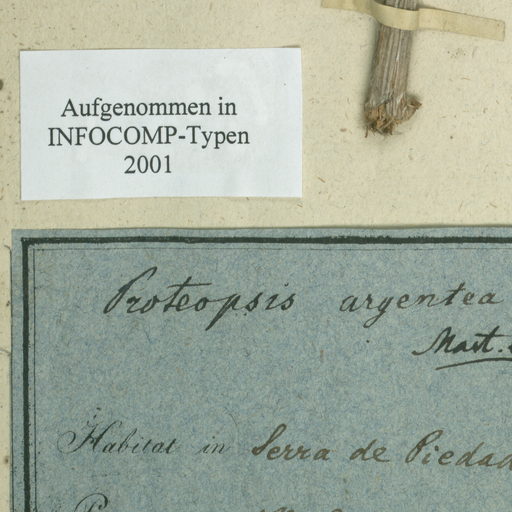 Aufgenommen in
INFOCOMP-Typen
2001
Proteopsis argentea
Mart.
Habitat in Serra de Piedad